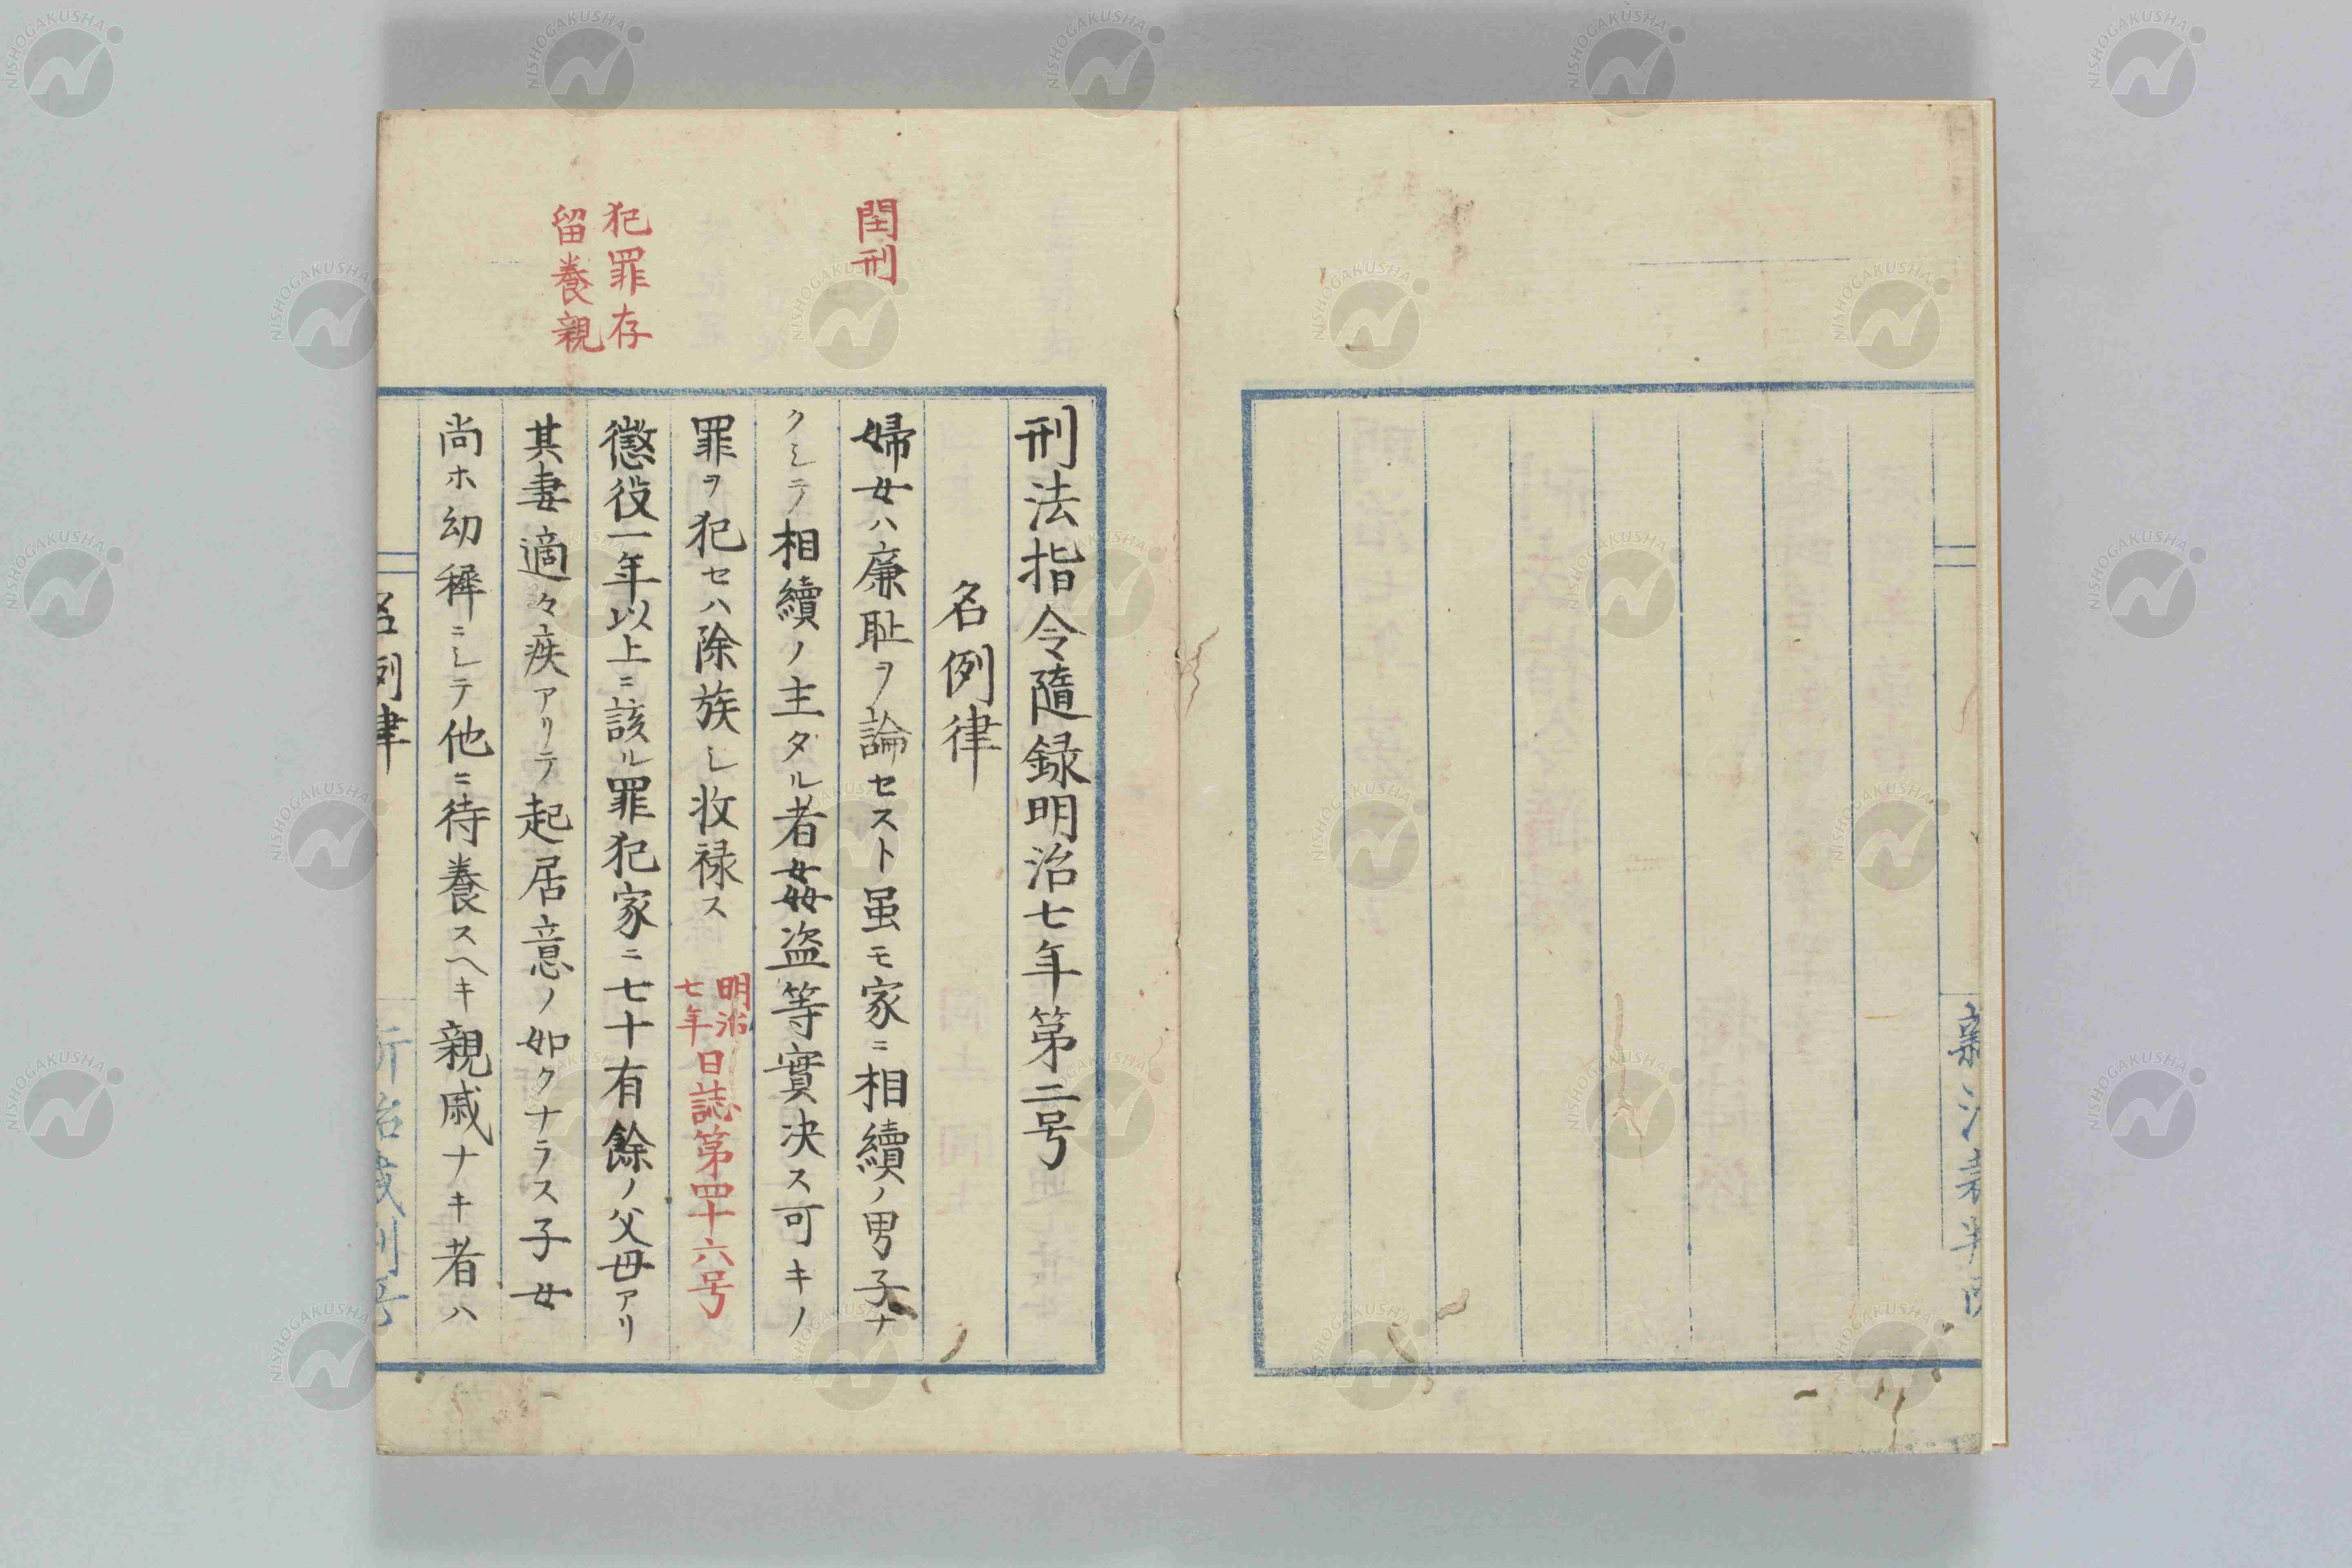 刑法指令隨録明治七年第二号
名例律
閏刑
婦女ハ廉耻ヲ論セスト虽モ家ニ相續ノ男子ナ
クシテ相續ノ主タル者姦盗等實决ス可キノ
罪ヲ犯セハ除族シ收禄ス 明治七年日誌第四十六号
犯罪存
留養親
懲役一年以上ニ該ル罪犯家ニ七十有餘ノ父母アリ
其妻適々疾アリテ起居意ノ如クナラス子女
尚ホ幼穉ニシテ他ニ待養スヘキ親戚ナキ者ハ
名例律
NISHOGAKUSHA